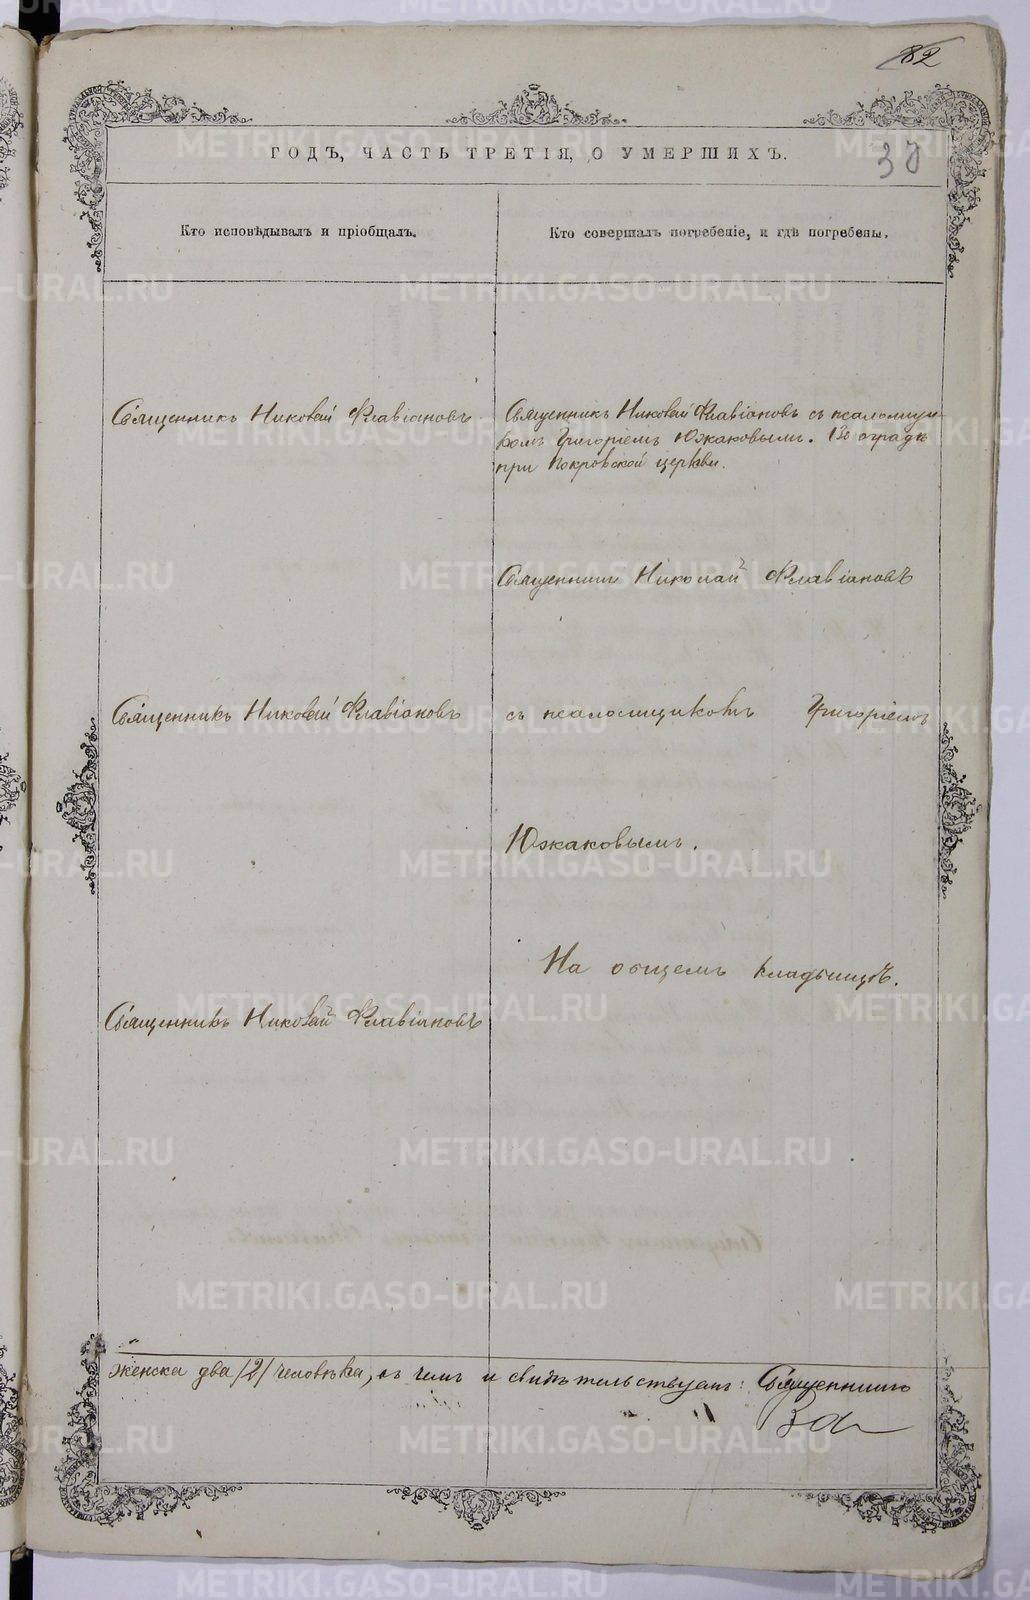 82
ГОДЪ, ЧАСТЬ ТРЕТІЯ, О УМЕРШИХЪ.
37
Кто исповѣдывалъ и пріобщалъ.
Кто совершалъ погребеніе, и гдѣ погребены.
Священникъ Николай Флавіановъ
Священникъ Николай Флавіановъ съ псаломщи-
комъ Григоріемъ Южаковымъ. Въ оградѣ
при Покровской церкви.
Священникъ Николай Флавіановъ
Священникъ Николай Флавіановъ
съ псаломщикомъ Григоріемъ
Южаковымъ.
На общемъ кладбищѣ.
Священникъ Николай Флавіановъ
женска два /2/ человѣка, въ чемъ и свидѣтельствуемъ: Священникъ
METRIKI.GASO-URAL.RU